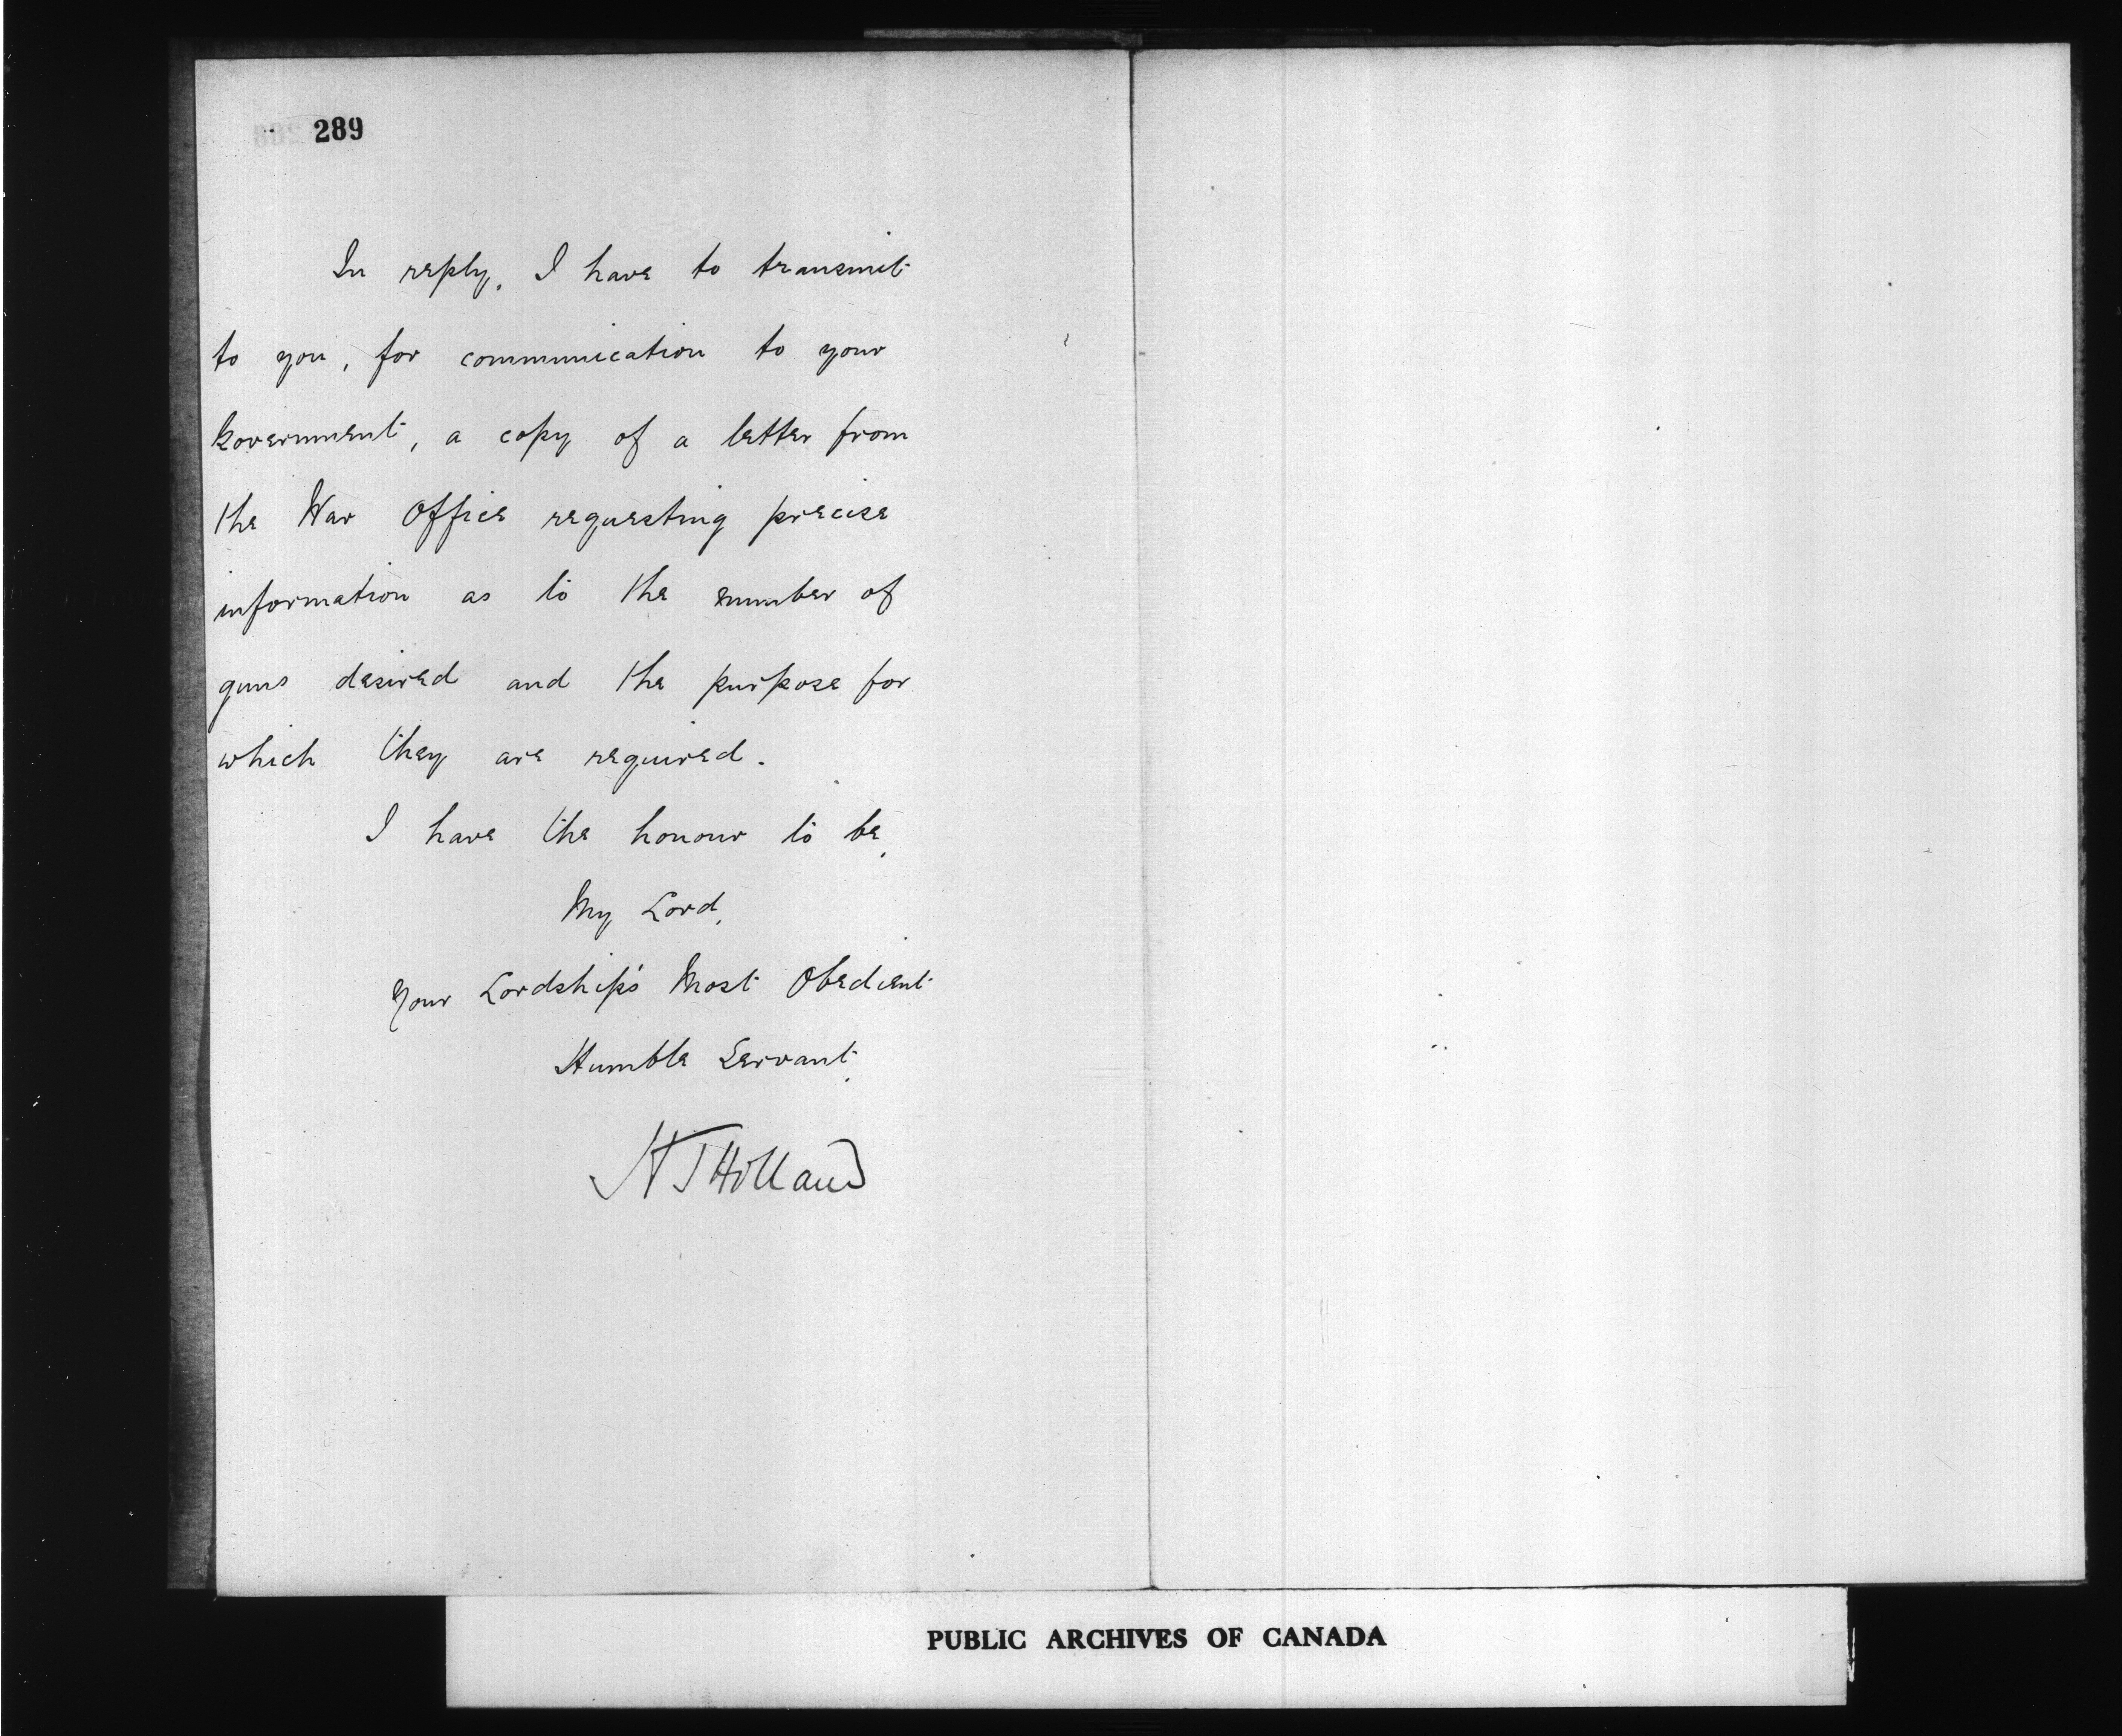 289
In reply, I have to transmit
to you, for communication to your
Government, a copy of a letter from
the War Office requesting precise
information as to the number of
guns desired and the purpose for
which they are required.
I have the honour to be,
My Lord,
Your Lordship's Most Obedient
Humble Servant,
H T Holland
PUBLIC ARCHIVES OF CANADA